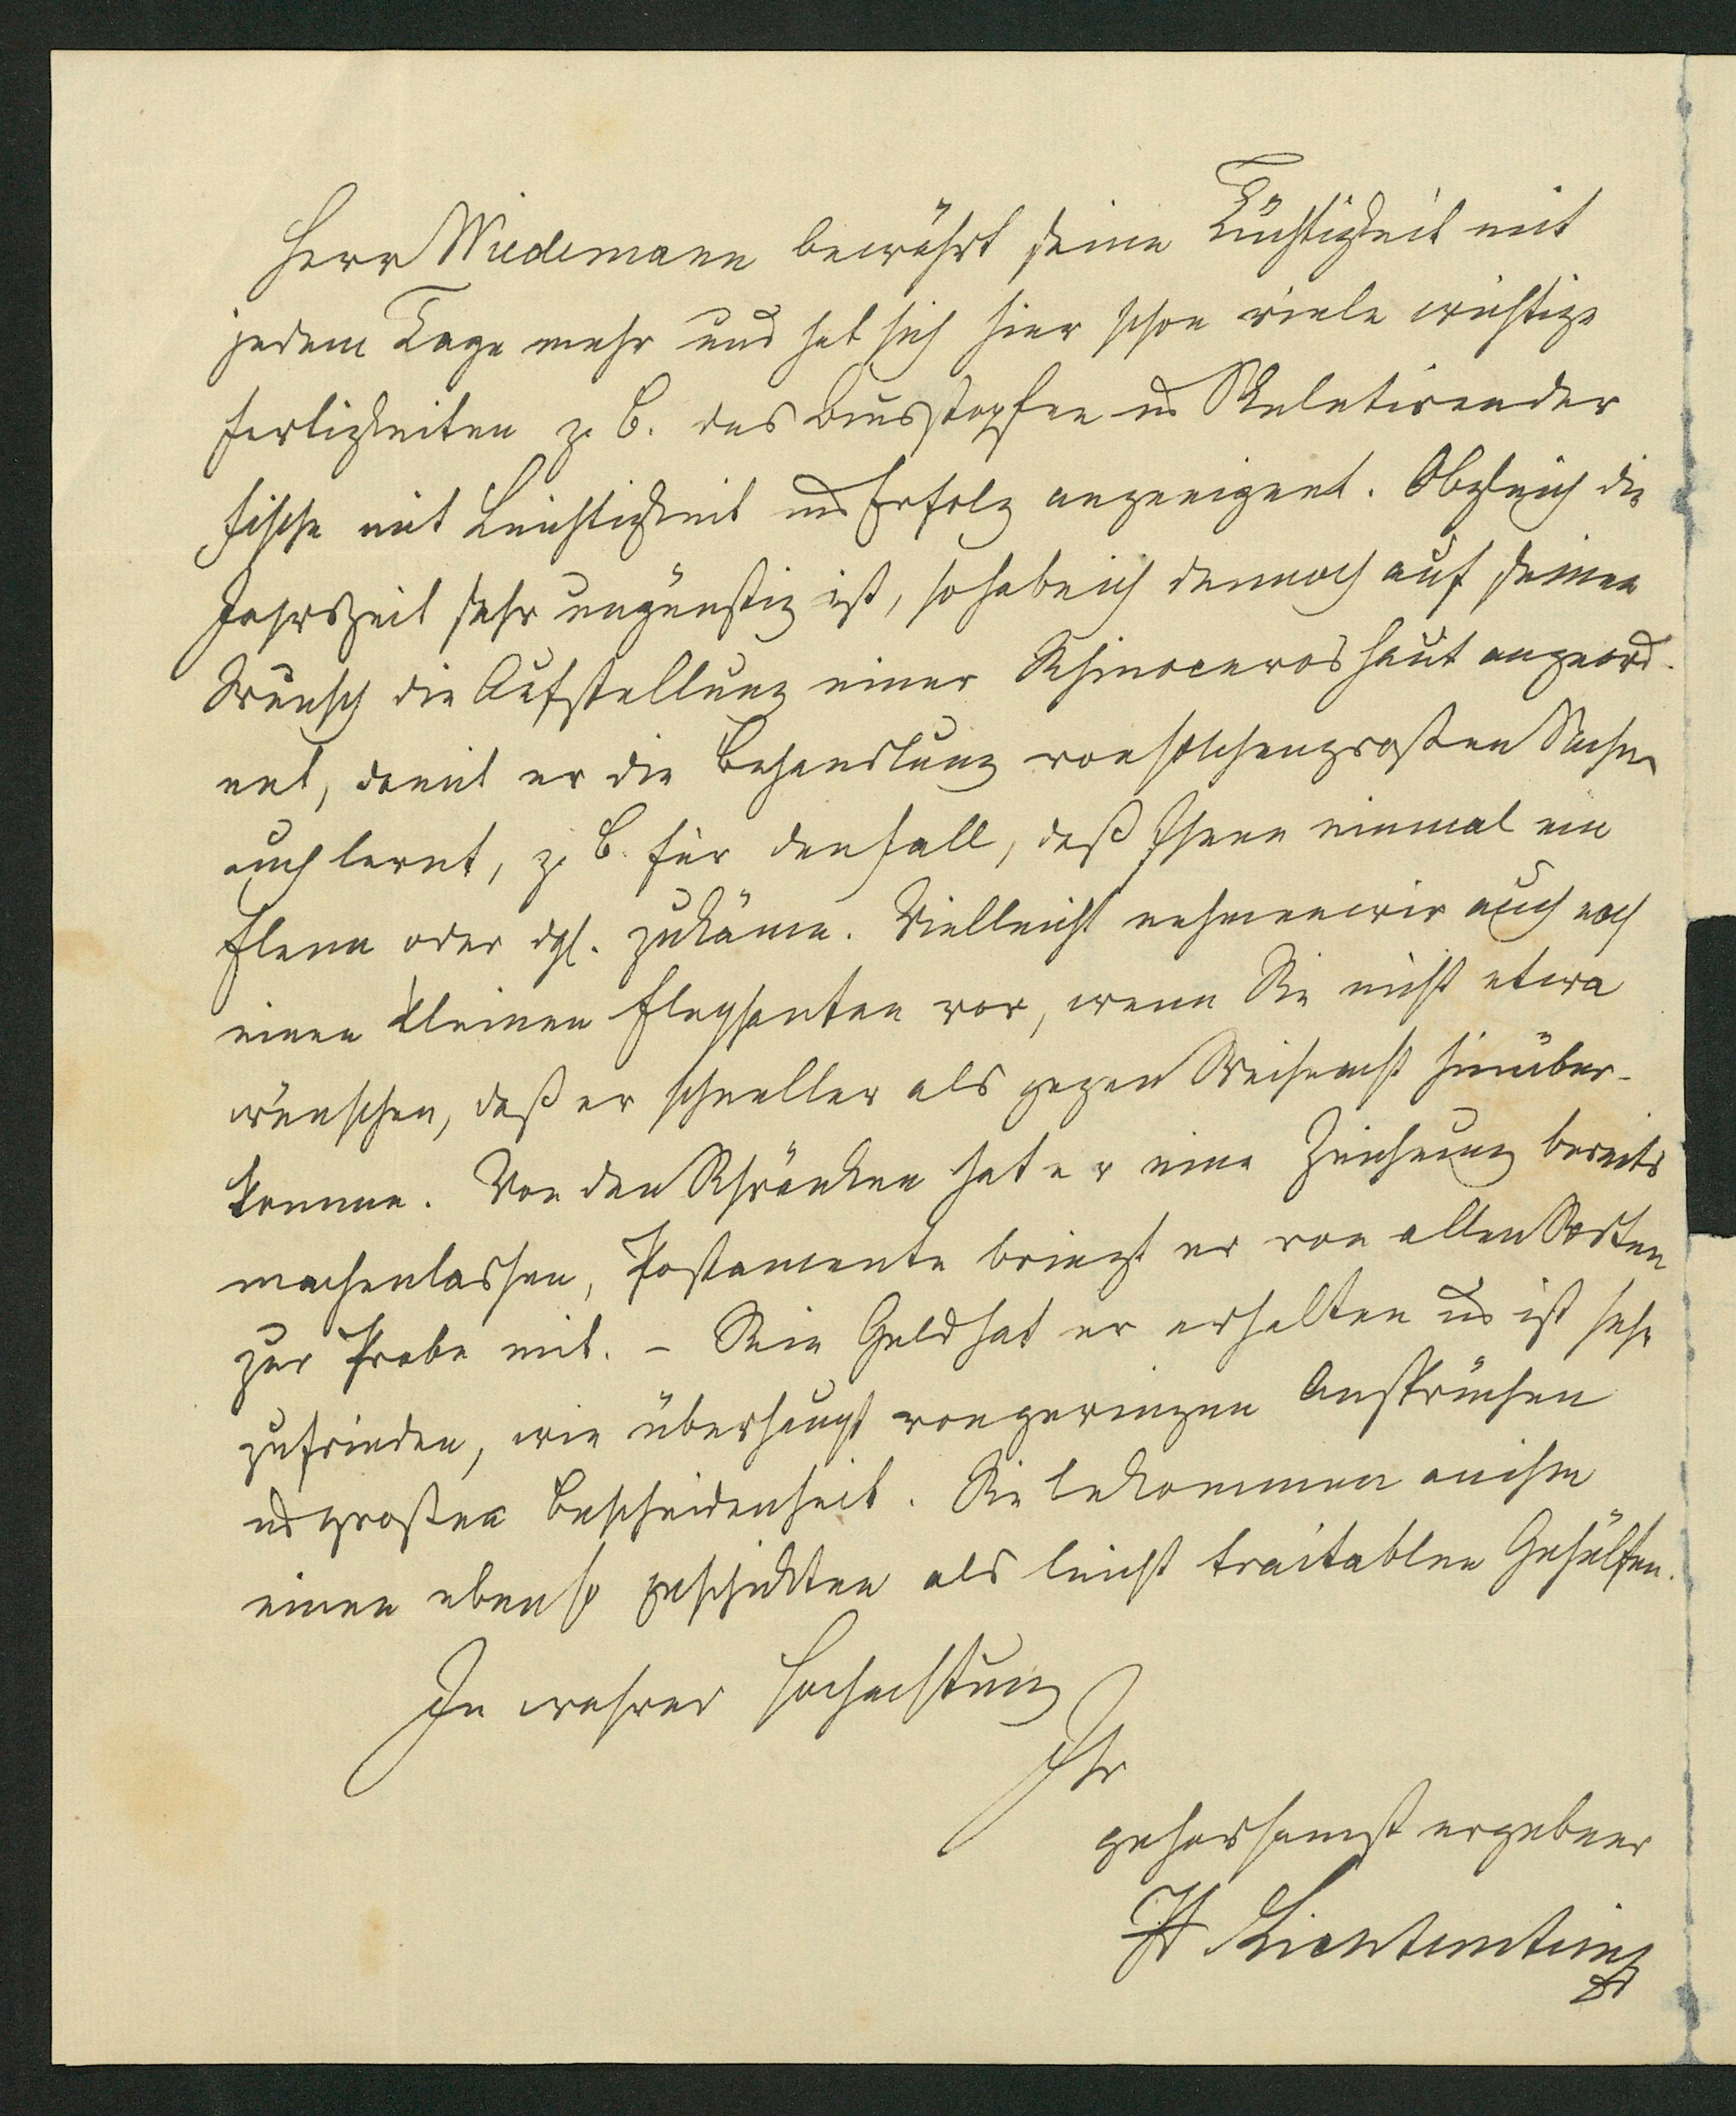 Herr Wiedemann bewährt seine Tüchtigkeit mit
jedem Tage mehr und hat sich hier schon viele wichtige
Fertigkeiten z. B. das Ausstopfen u Skeletiren der
Fische mit Leichtigkeit und Erfolg angeeignet. Obgleich die
Jahrszeit sehr ungünstig ist, so habe ich dennoch auf seinen
Wunsch die Aufstellung einer Rhinoceroshaut angeord-
net, damit er die Behandlung von solchen großen Sachen
auch lernt, z. B. für den Fall, daß Ihnen einmal ein
Elenn oder dgl. zukäme. Vielleicht nehmen wir auch noch
einen kleinen Elephanten vor, wenn Sie nicht etwa
wünschen, daß er schneller als gegen Weihnacht hinüber-
komme. Von den Schränken hat er eine Zeichnung bereits
machen lassen, Postamente bringt er von allen Sorten
zur Probe mit. – Sein Geld hat er erhalten und ist sehr
zufrieden, wie überhaupt von geringen Ansprüchen
und großer Bescheidenheit. Sie bekommen an ihm
einen ebenso geschickten als leicht traitablen Gehülfen.
In wahrer Hochachtung
Ihr
gehorsamst ergebner
H Lichtenstein